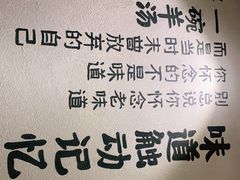 味道触动记忆
别总说你怀念老味道
你怀念的不是味道
而是当时未曾放弃的自己
一碗羊汤